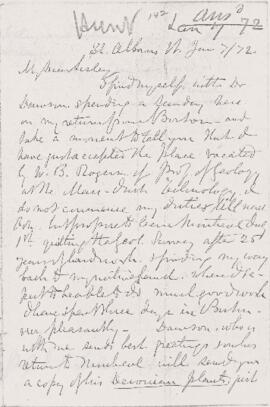 Hunt
142
Ansd
Jan 11/72
St. Albans Vt. Jan 7/72.
My dear Lesley
I find myself, with Dr
Dawson, spending a Sunday here
on my return from Boston - and
take a moment to tell you that I
have just accepted the place vacated
by W. B. Rogers, of Prof of Geology
at the Mass. Inst Technology. I
do not commence my duties till next
but propose to leave Montreal
1st, quitting the Geol. Survey after 25
years of hard work. & finding my way
back to my native land. where I
to be able to do much good work
I have spent three days in Boston
very pleasantly - Dawson, who is
with me sends best greetings & on his
return to Montreal will send you
a copy of his Devonian plants, just